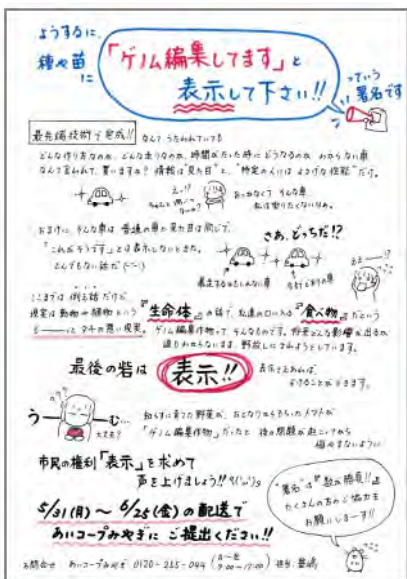 ようするに、
種や苗に
「ゲノム編集してます」と
表示して下さい!!
っていう
署名です
最先端技術で完成!!
なんてうたわれていても
どんな作り方なのか、どんな走りなのか、時間がたった時にどうなるのか、わからない車
なんて言われて、買いますか? 情報は"見た目"と、"特定の人には
えっ!?
おっかなくて そんな車
私は乗りたくないなぁ。
おまけに、そんな車は 普通の車と見た目は同じで、
「これがそうです」とは表示しないときた。
とんでもない話だ
さあ、どっちだ!?
ここまでは 例え話だけど
現実は動物や植物という『生命体』の話で、私達の口に入る『食べ物』だという
タチの悪い現実。ゲノム編集作物って そんなものです。将来どんな影響が出るか
誰もわからないまま、野放しにされようとしています。
最後の砦は
表示!!
表示さえあれば、
さけることができます。
うーむ…
大丈夫?
知らずに育てた野菜が、おとなりからもらったトマトが
「ゲノム編集作物」だったと 後の問題が起こってから
悩やまないように
市民の権利「表示」を求めて
声を上げましょう!!
5/31(月)～6/25(金)の配送で
あいコープみやぎに ご提出ください!!
"署名"は『数が勝負!!』
たくさんの方のご協力を
お願いしまーす!!
お問合せ あいコープみやぎ 0120-255-044 (月～金 9:00～17:00) 担当: